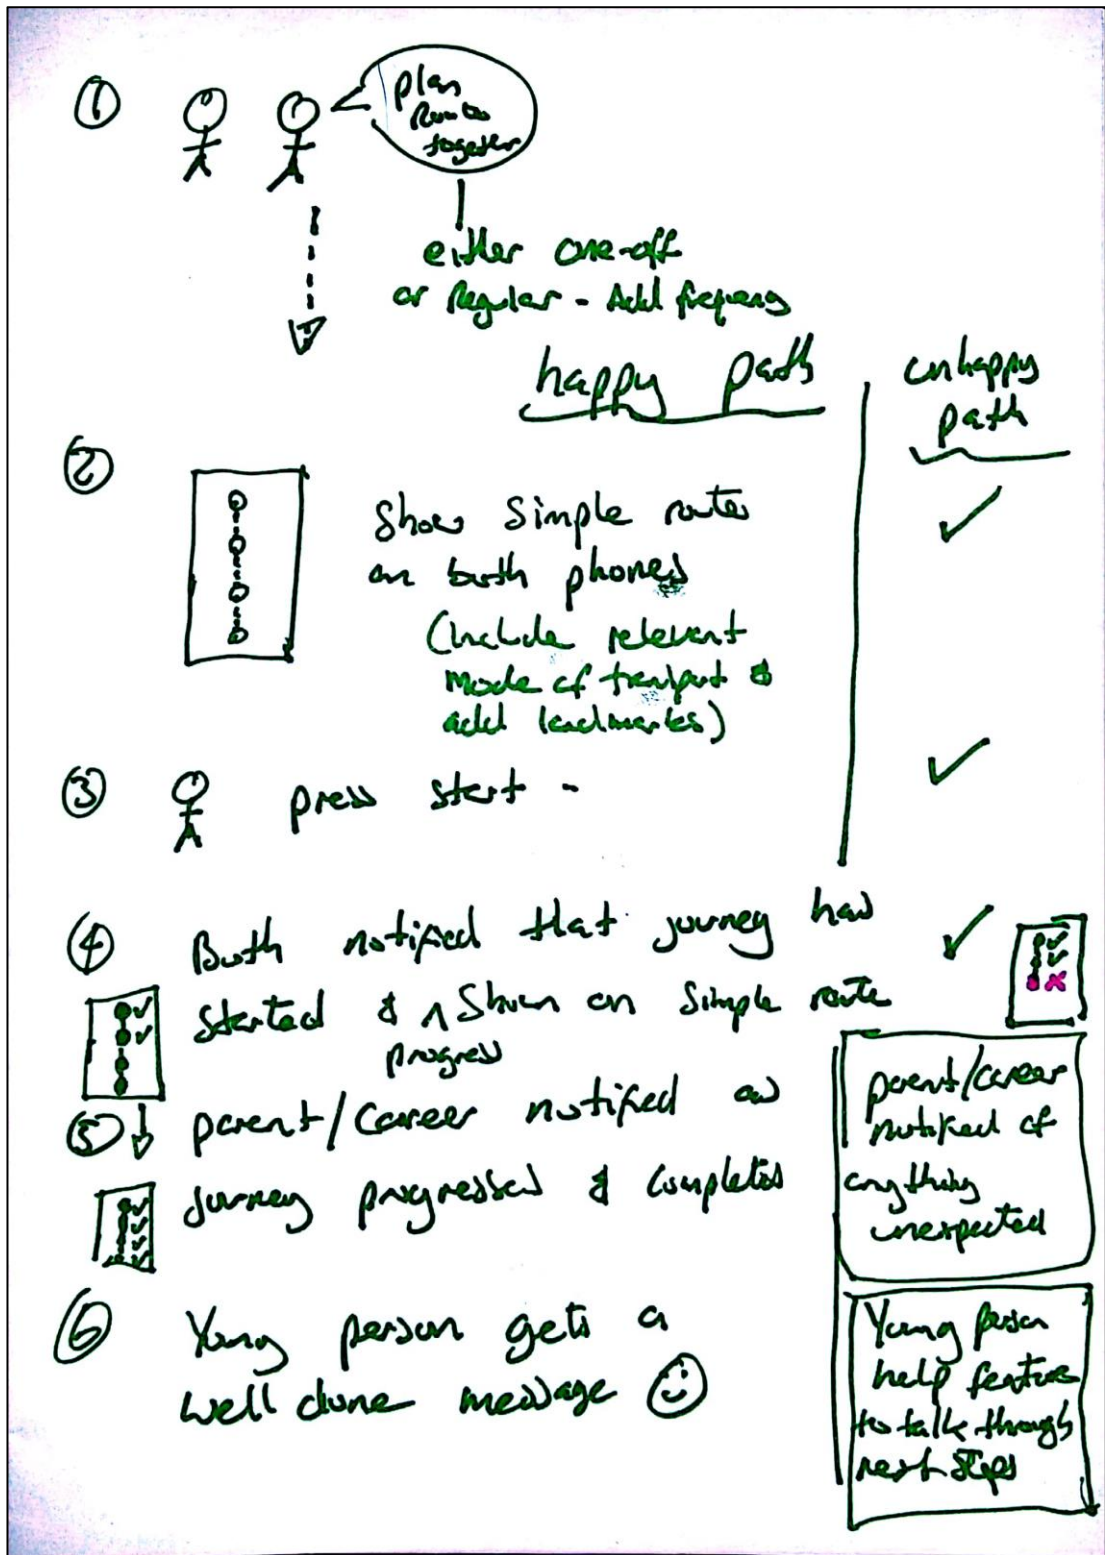 ①
plan
Route
together
either one-off
or Regular - Add frequency
happy path
unhappy
path
②
Show simple route
on both phones
(include relevent
mode of transport &
add landmarks)
③
press start -
④
Both notified that journey has
started & ^ shown on simple route
progress
⑤
parent/career notified as
journey progressed & completed
parent/career
notified of
anything
unexpected
⑥
Young person gets a
well done message
Young person
help feature
to talk through
next steps